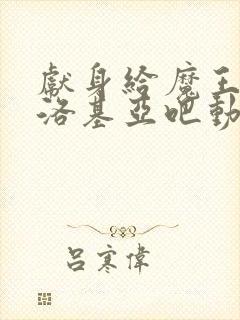 獻身給魔王伊
洛基亞吧動漫
呂寒偉